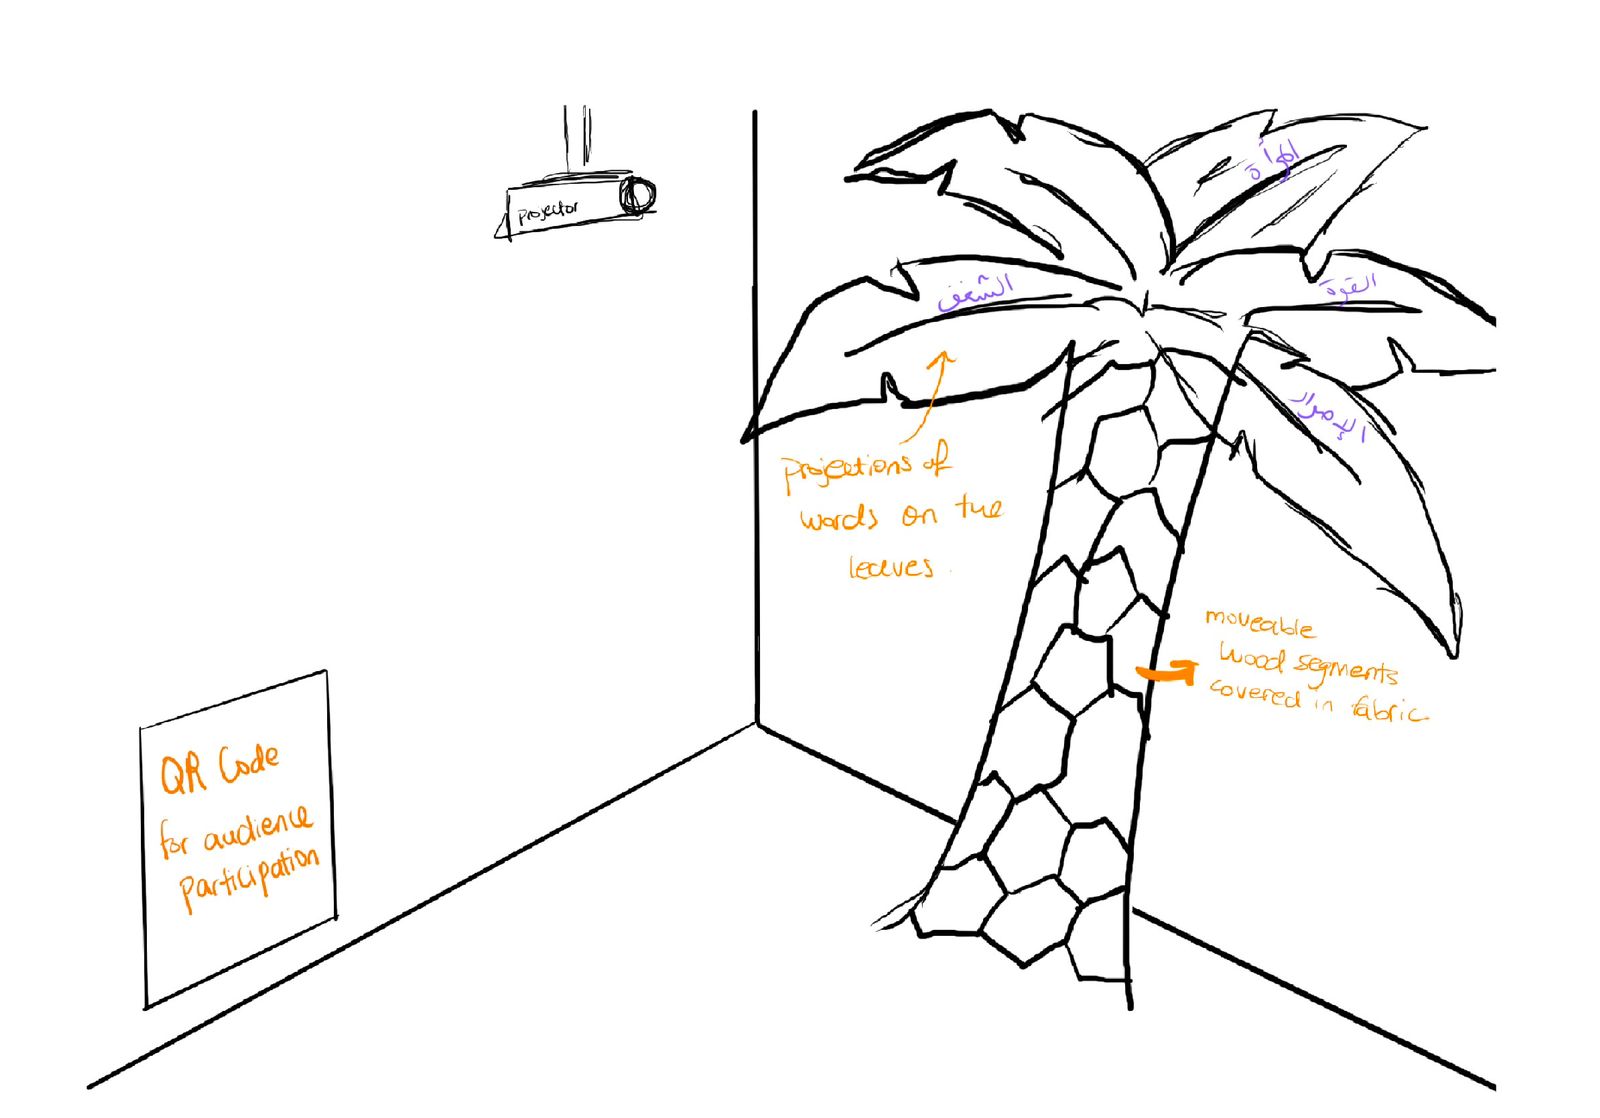 projector
المرأة
الشغف
القوة
الإصرار
projections of
words on the
leaves.
moveable
wood segments
covered in fabric
QR Code
for audience
participation